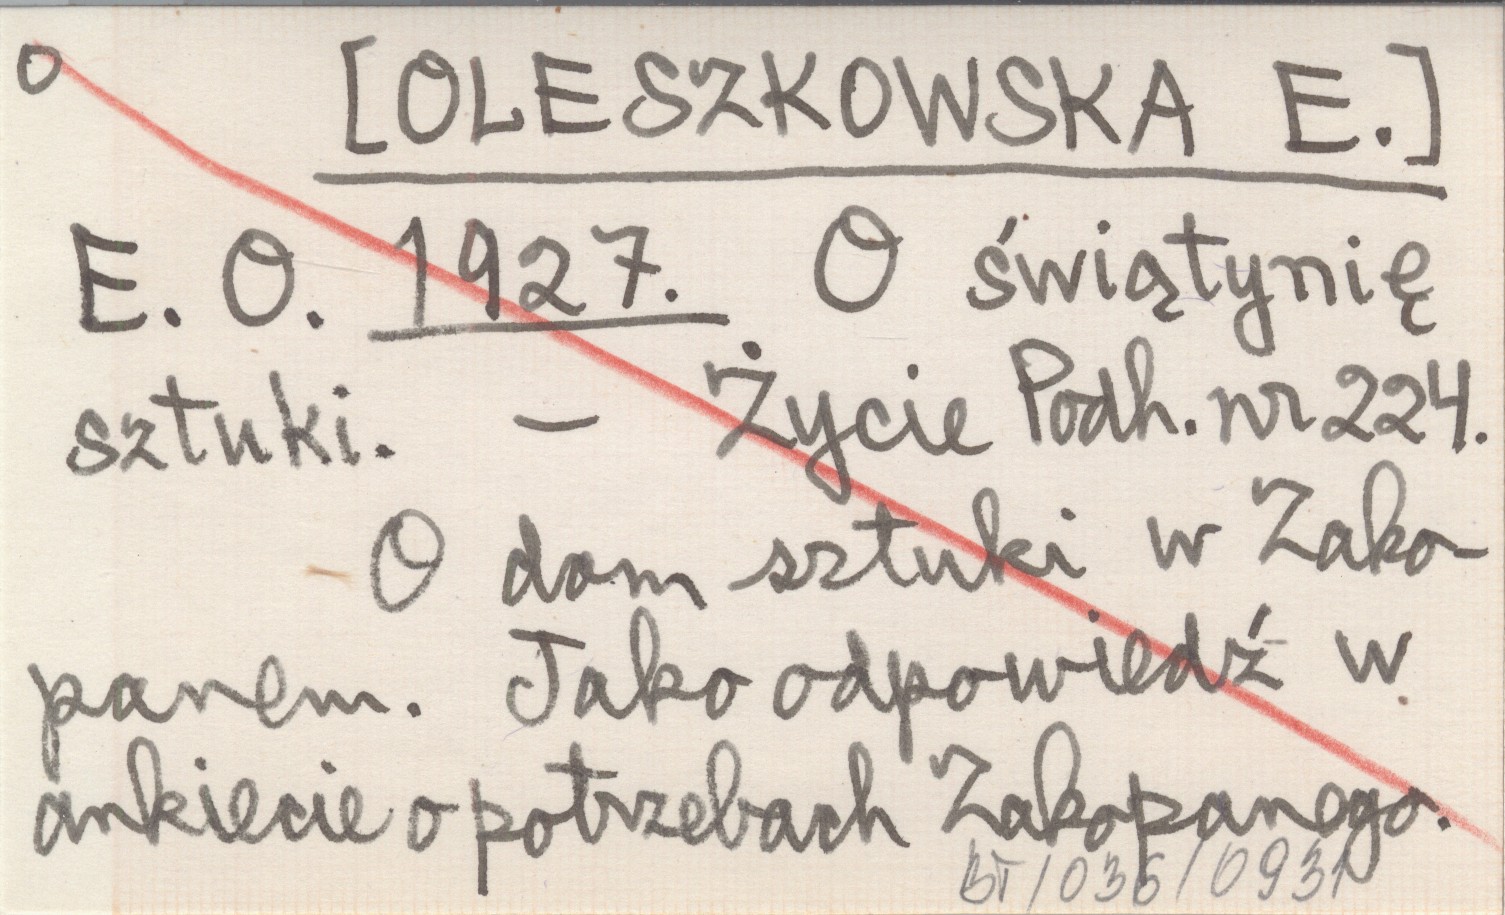 o [OLESZKOWSKA E.]
E. O. 1927. O świątynię
sztuki. – Życie Podh. nr 224.
O dom sztuki w Zako-
panem. Jako odpowiedź w
ankiecie o potrzebach Zakopanego.
BT/036/0931